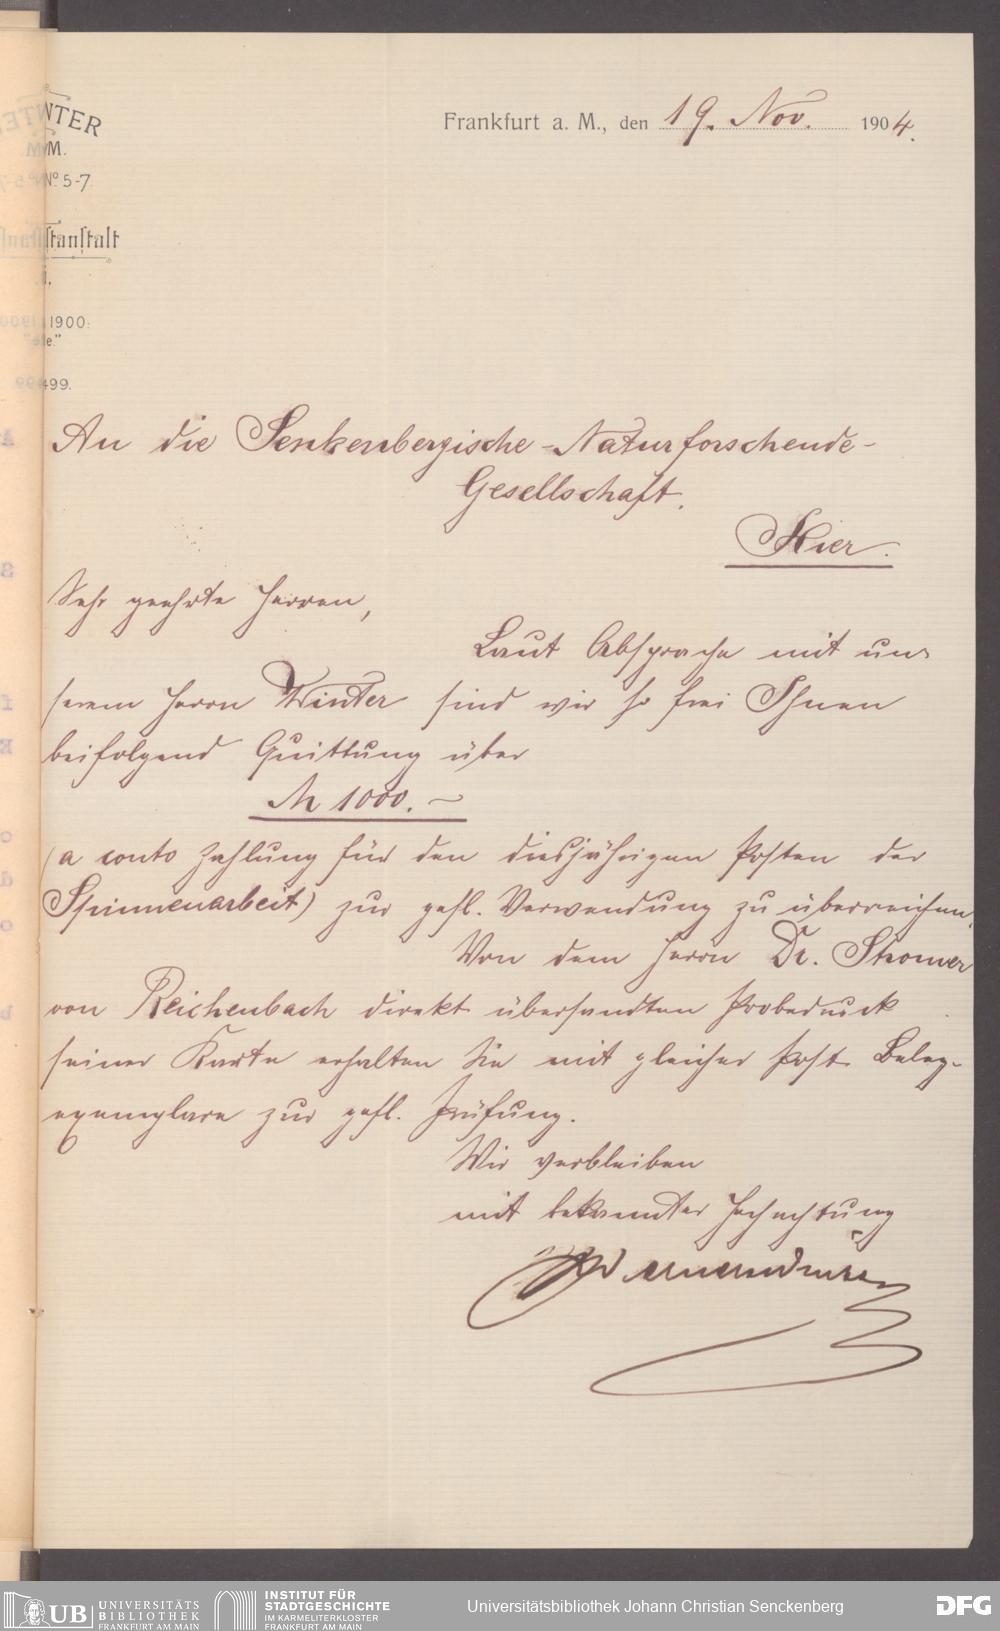 NTER
M.
No. 5-7.
stanstalt
1900:
le."
499.
Frankfurt a. M., den 19. Nov. 1904.
An die Senkenbergische-Naturforschende-
Gesellschaft.
Hier.
Sehr geehrte Herren,
Laut Absprache mit un-
serem Herrn Winter sind wir so frei Ihnen
beifolgend Quittung über
M 1000.–
(a conto Zahlung für den diesjährigen Posten der
Spinnenarbeit) zur gefl. Verwendung zu überreichen.
Von dem Herrn Dr. Stromer
von Reichenbach direkt übersandten Probedruck
seiner Karte erhalten Sie mit gleicher Post Beleg-
exemplare zur gefl. Prüfung.
Wir verbleiben
mit bekannter Hochachtung
UB UNIVERSITÄTS
BIBLIOTHEK
FRANKFURT AM MAIN
INSTITUT FÜR
STADTGESCHICHTE
IM KARMELITERKLOSTER
FRANKFURT AM MAIN
Universitätsbibliothek Johann Christian Senckenberg
DFG